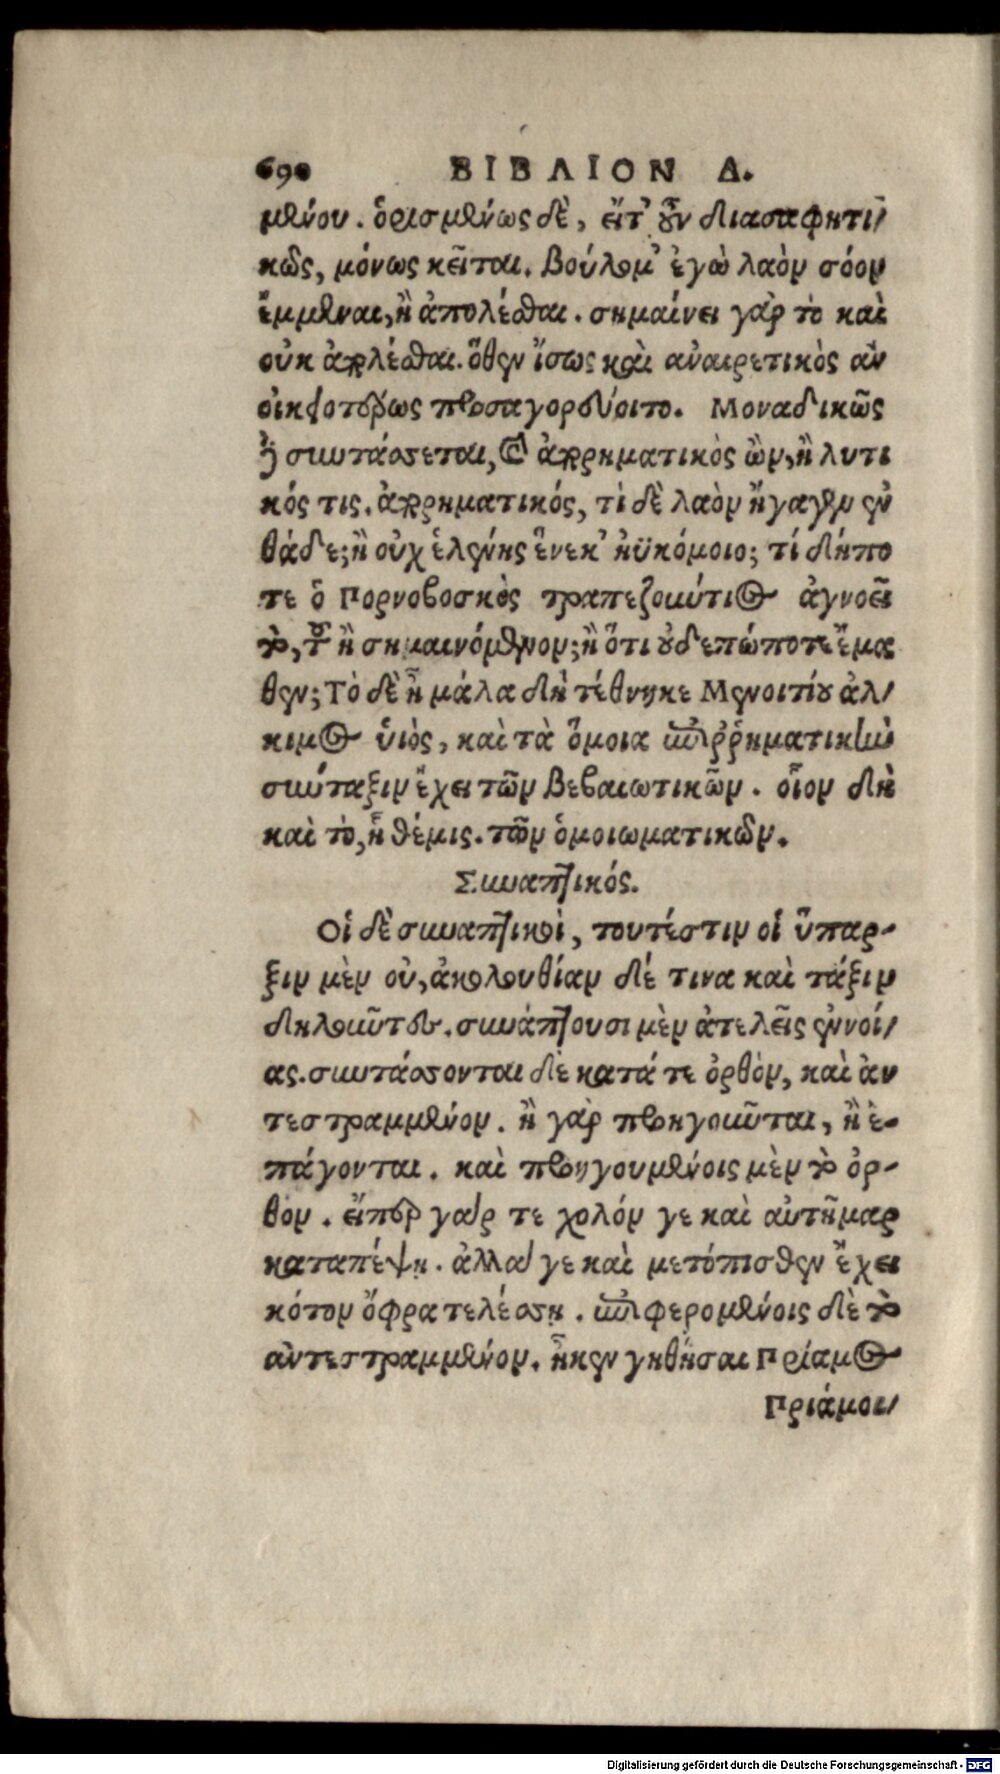 690 ΒΙΒΛΙΟΝ Δ.
μένου. ὁρισμένως δὲ, εἴτ' οὖν διασαφητι/
κῶς, μόνως κεῖται. βούλομ' ἐγὼ λαὸν σόον
ἔμμεναι, ἢ ἀπολέσθαι. σημαίνει γὰρ τὸ καὶ
οὐκ ἀπολέσθαι. ὅθεν ἴσως καὶ αὐαιρετικὸς αὖ
οἰκειοτέρως προσαγορεύοιτο. Μοναδικῶς
ἢ συντάσσεται, ὁ ἀπορρηματικὸς ὢν, ἢ λυτι
κός τις. ἀπορρηματικός, τὶ δὲ λαὸν ἤγαγεν ἐν
θάδε; ἢ οὐχ ἑλένης ἕνεκ' ἠϋκόμοιο; τί δήπο
τε ὁ Πορνοβοσκὸς τραπεζοκύτιος ἀγνοεῖ
τὸ, τοῦ ἢ σημαινόμενον; ἢ ὅτι οὐδεπώποτε ἔμα
θεν; Τὸ δὲ ἦ μάλα δὴ τέθνηκε Μενοιτίου ἄλ/
κιμος ὑιὸς, καὶ τὰ ὅμοια ἐπιῤῥηματικὴν
σύνταξιν ἔχει τῶν βεβαιωτικῶν. οἷον δὴ
καὶ τὸ, ἧ θέμις. τῶν ὁμοιωματικῶν.
Συναπτικός.
Οἱ δὲ συναπτικοὶ, τουτέστιν οἱ ὕπαρ-
ξιν μὲν οὐ, ἀκολουθίαν δέ τινα καὶ τάξιν
δηλοῦντες. συνάπτουσι μὲν ἀτελεῖς ἐννοί/
ας. συντάσσονται δὲ κατά τε ὀρθὸν, καὶ ἀν
τεστραμμένον. ἢ γὰρ προηγοῦνται, ἢ ἐ-
πάγονται. καὶ προηγουμένοις μὲν τὸ ὀρ-
θον. εἴπερ γάρ τε χολόν γε καὶ αὐτῆμαρ
καταπέψῃ. ἀλλά γε καὶ μετόπισθεν ἔχει
κότον ὄφρα τελέσσῃ. ἐπιφερομένοις δὲ τὸ
ἀντεστραμμένον. ἦκεν γηθήσαι Πρίαμος
Πριάμοι/
Digitalisierung gefördert durch die Deutsche Forschungsgemeinschaft - DFG